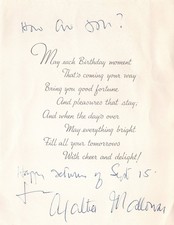 How are you?
May each Birthday moment
That's coming your way
Bring you good fortune
And pleasures that stay,
And when the day's over
May everything bright
Fill all your tomorrows
With cheer and delight!
Happy return of Sept 15.